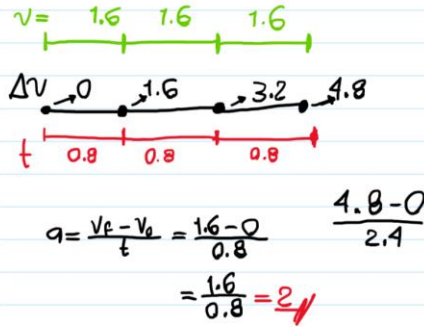 v= 1.6 1.6 1.6
Δv →0 →1.6 →3.2 →4.8
t 0.8 0.8 0.8
a= vf - vo / t = 1.6-0 / 0.8
4.8-0 / 2.4
= 1.6 / 0.8 = 2